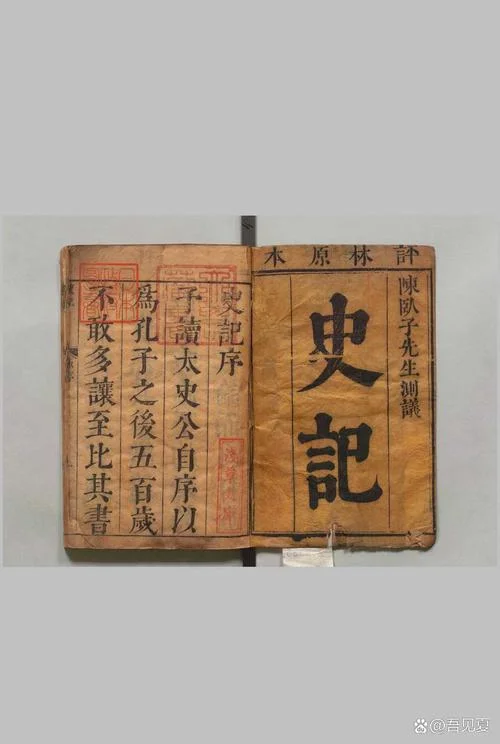 評林原本
陳臥子先生測議
史記
史記序
淺草文庫
予讀太史公自序以
爲孔子之後五百歲
不敢多讓至比其書
@吾见夏